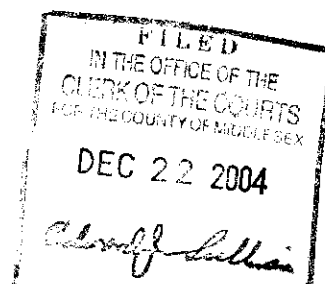 FILED
IN THE OFFICE OF THE
CLERK OF THE COURTS
FOR THE COUNTY OF MIDDLESEX
DEC 22 2004
Sullivan